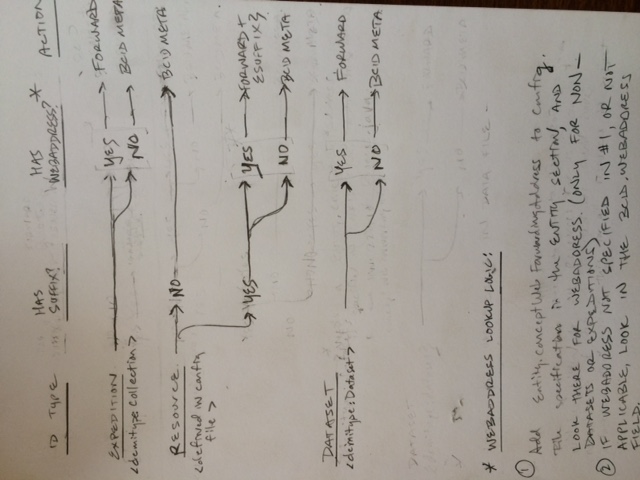 ID TYPE HAS SUFFIX? HAS WEBADDRESS? * ACTION
EXPEDITION YES FORWARD
<dcmitype:Collection> NO BCID META
RESOURCE NO BCID META
<defined in config file>
YES YES FORWARD + {SUFFIX}
NO BCID META
DATASET YES FORWARD
<dcmitype:Dataset> NO BCID META
* WEBADDRESS LOOKUP LOGIC:
① Add Entity.conceptWebForwardingAddress to Config.
File specification in the ENTITY section, AND
LOOK THERE FOR WEBADDRESS. (ONLY FOR NON-
DATASETS OR EXPEDITIONS)
② IF WEBADDRESS NOT SPECIFIED IN #1, OR NOT
APPLICABLE, LOOK IN THE BCID.WEBADDRESS
FIELD.